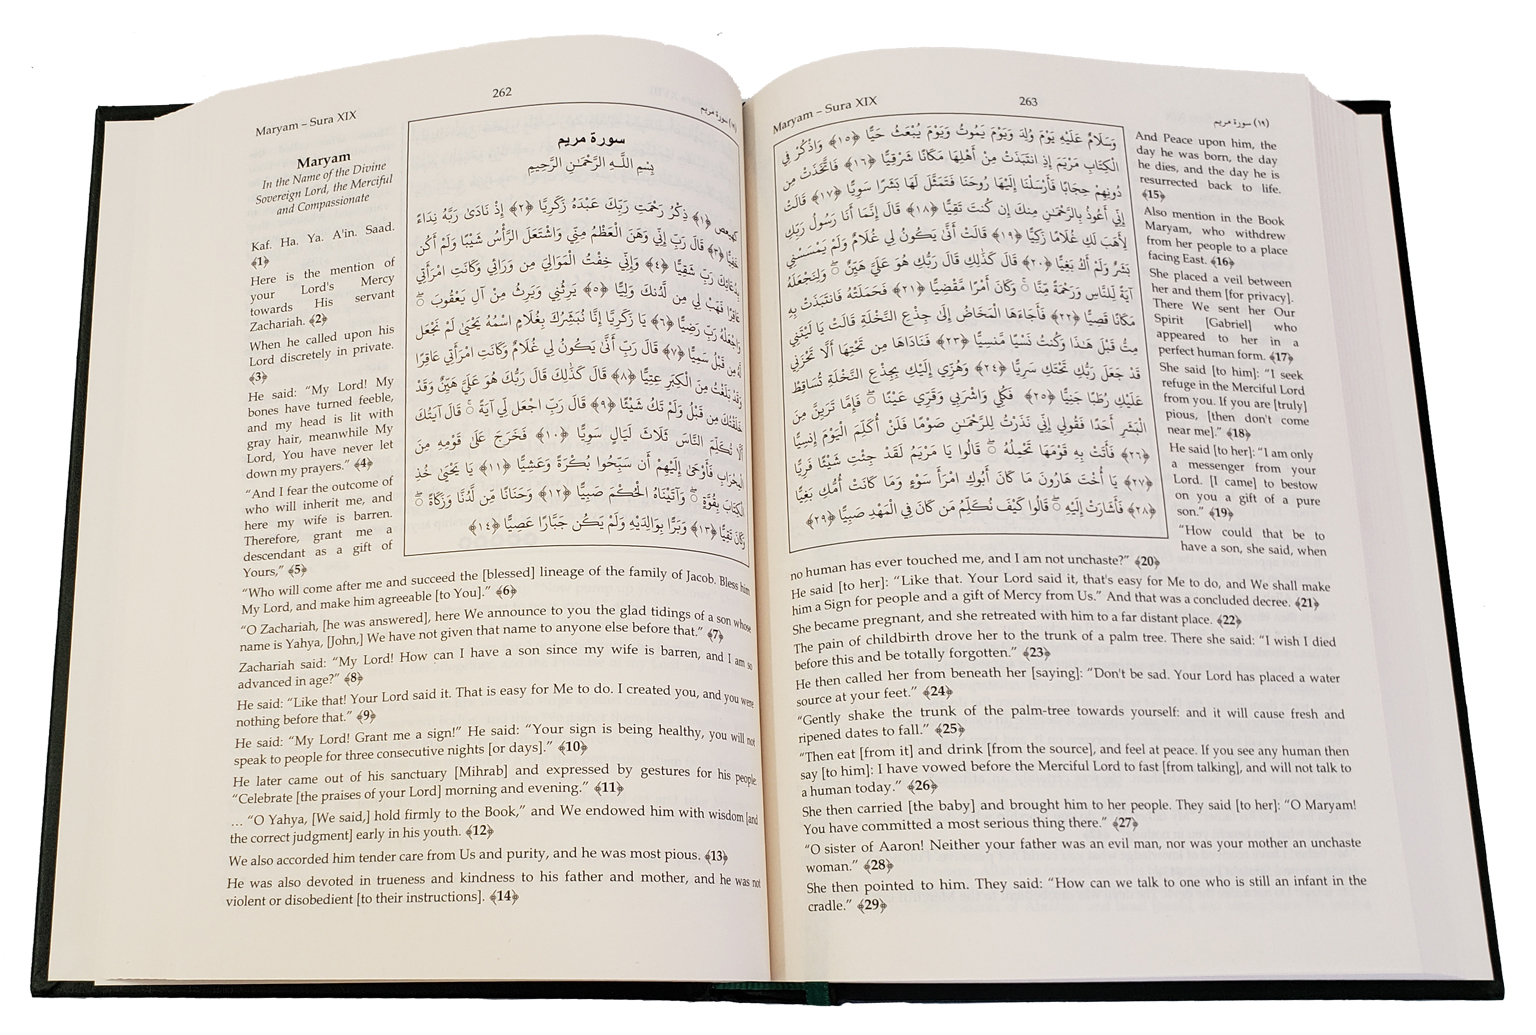 Maryam – Sura XIX
262
(١٩) سورة مريم
Maryam
In the Name of the Divine
Sovereign Lord, the Merciful
and Compassionate
Kaf. Ha. Ya. A'in. Saad.
﴾1﴿
Here is the mention of
your Lord's Mercy
towards His servant
Zachariah. ﴾2﴿
When he called upon his
Lord discretely in private.
﴾3﴿
He said: “My Lord! My
bones have turned feeble,
and my head is lit with
gray hair, meanwhile My
Lord, You have never let
down my prayers.” ﴾4﴿
“And I fear the outcome of
who will inherit me, and
here my wife is barren.
Therefore, grant me a
descendant as a gift of
Yours,” ﴾5﴿
سورة مريم
بِسْمِ اللَّـهِ الرَّحْمَـٰنِ الرَّحِيمِ
كهيعص ﴿١﴾ ذِكْرُ رَحْمَتِ رَبِّكَ عَبْدَهُ زَكَرِيَّا ﴿٢﴾ إِذْ نَادَىٰ رَبَّهُ نِدَاءً
خَفِيًّا ﴿٣﴾ قَالَ رَبِّ إِنِّي وَهَنَ الْعَظْمُ مِنِّي وَاشْتَعَلَ الرَّأْسُ شَيْبًا وَلَمْ أَكُن
بِدُعَائِكَ رَبِّ شَقِيًّا ﴿٤﴾ وَإِنِّي خِفْتُ الْمَوَالِيَ مِن وَرَائِي وَكَانَتِ امْرَأَتِي
عَاقِرًا فَهَبْ لِي مِن لَّدُنكَ وَلِيًّا ﴿٥﴾ يَرِثُنِي وَيَرِثُ مِنْ آلِ يَعْقُوبَ ۖ
وَاجْعَلْهُ رَبِّ رَضِيًّا ﴿٦﴾ يَا زَكَرِيَّا إِنَّا نُبَشِّرُكَ بِغُلَامٍ اسْمُهُ يَحْيَىٰ لَمْ نَجْعَل
لَّهُ مِن قَبْلُ سَمِيًّا ﴿٧﴾ قَالَ رَبِّ أَنَّىٰ يَكُونُ لِي غُلَامٌ وَكَانَتِ امْرَأَتِي عَاقِرًا
وَقَدْ بَلَغْتُ مِنَ الْكِبَرِ عِتِيًّا ﴿٨﴾ قَالَ كَذَٰلِكَ قَالَ رَبُّكَ هُوَ عَلَيَّ هَيِّنٌ وَقَدْ
خَلَقْتُكَ مِن قَبْلُ وَلَمْ تَكُ شَيْئًا ﴿٩﴾ قَالَ رَبِّ اجْعَل لِّي آيَةً ۚ قَالَ آيَتُكَ
أَلَّا تُكَلِّمَ النَّاسَ ثَلَاثَ لَيَالٍ سَوِيًّا ﴿١٠﴾ فَخَرَجَ عَلَىٰ قَوْمِهِ مِنَ
الْمِحْرَابِ فَأَوْحَىٰ إِلَيْهِمْ أَن سَبِّحُوا بُكْرَةً وَعَشِيًّا ﴿١١﴾ يَا يَحْيَىٰ خُذِ
الْكِتَابَ بِقُوَّةٍ ۖ وَآتَيْنَاهُ الْحُكْمَ صَبِيًّا ﴿١٢﴾ وَحَنَانًا مِّن لَّدُنَّا وَزَكَاةً ۖ
وَكَانَ تَقِيًّا ﴿١٣﴾ وَبَرًّا بِوَالِدَيْهِ وَلَمْ يَكُن جَبَّارًا عَصِيًّا ﴿١٤﴾
“Who will come after me and succeed the [blessed] lineage of the family of Jacob. Bless him
My Lord, and make him agreeable [to You].” ﴾6﴿
“O Zachariah, [he was answered], here We announce to you the glad tidings of a son whose
name is Yahya, [John,] We have not given that name to anyone else before that.” ﴾7﴿
Zachariah said: “My Lord! How can I have a son since my wife is barren, and I am so
advanced in age?” ﴾8﴿
He said: “Like that! Your Lord said it. That is easy for Me to do. I created you, and you were
nothing before that.” ﴾9﴿
He said: “My Lord! Grant me a sign!” He said: “Your sign is being healthy, you will not
speak to people for three consecutive nights [or days].” ﴾10﴿
He later came out of his sanctuary [Mihrab] and expressed by gestures for his people
“Celebrate [the praises of your Lord] morning and evening.” ﴾11﴿
… “O Yahya, [We said,] hold firmly to the Book,” and We endowed him with wisdom [and
the correct judgment] early in his youth. ﴾12﴿
We also accorded him tender care from Us and purity, and he was most pious. ﴾13﴿
He was also devoted in trueness and kindness to his father and mother, and he was not
violent or disobedient [to their instructions]. ﴾14﴿
Maryam – Sura XIX
263
(١٩) سورة مريم
وَسَلَامٌ عَلَيْهِ يَوْمَ وُلِدَ وَيَوْمَ يَمُوتُ وَيَوْمَ يُبْعَثُ حَيًّا ﴿١٥﴾ وَاذْكُرْ فِي
الْكِتَابِ مَرْيَمَ إِذِ انتَبَذَتْ مِنْ أَهْلِهَا مَكَانًا شَرْقِيًّا ﴿١٦﴾ فَاتَّخَذَتْ مِن
دُونِهِمْ حِجَابًا فَأَرْسَلْنَا إِلَيْهَا رُوحَنَا فَتَمَثَّلَ لَهَا بَشَرًا سَوِيًّا ﴿١٧﴾ قَالَتْ
إِنِّي أَعُوذُ بِالرَّحْمَـٰنِ مِنكَ إِن كُنتَ تَقِيًّا ﴿١٨﴾ قَالَ إِنَّمَا أَنَا رَسُولُ رَبِّكِ
لِأَهَبَ لَكِ غُلَامًا زَكِيًّا ﴿١٩﴾ قَالَتْ أَنَّىٰ يَكُونُ لِي غُلَامٌ وَلَمْ يَمْسَسْنِي
بَشَرٌ وَلَمْ أَكُ بَغِيًّا ﴿٢٠﴾ قَالَ كَذَٰلِكِ قَالَ رَبُّكِ هُوَ عَلَيَّ هَيِّنٌ ۖ وَلِنَجْعَلَهُ
آيَةً لِّلنَّاسِ وَرَحْمَةً مِّنَّا ۚ وَكَانَ أَمْرًا مَّقْضِيًّا ﴿٢١﴾ فَحَمَلَتْهُ فَانتَبَذَتْ بِهِ
مَكَانًا قَصِيًّا ﴿٢٢﴾ فَأَجَاءَهَا الْمَخَاضُ إِلَىٰ جِذْعِ النَّخْلَةِ قَالَتْ يَا لَيْتَنِي
مِتُّ قَبْلَ هَـٰذَا وَكُنتُ نَسْيًا مَّنسِيًّا ﴿٢٣﴾ فَنَادَاهَا مِن تَحْتِهَا أَلَّا تَحْزَنِي
قَدْ جَعَلَ رَبُّكِ تَحْتَكِ سَرِيًّا ﴿٢٤﴾ وَهُزِّي إِلَيْكِ بِجِذْعِ النَّخْلَةِ تُسَاقِطْ
عَلَيْكِ رُطَبًا جَنِيًّا ﴿٢٥﴾ فَكُلِي وَاشْرَبِي وَقَرِّي عَيْنًا ۖ فَإِمَّا تَرَيِنَّ مِنَ
الْبَشَرِ أَحَدًا فَقُولِي إِنِّي نَذَرْتُ لِلرَّحْمَـٰنِ صَوْمًا فَلَنْ أُكَلِّمَ الْيَوْمَ إِنسِيًّا
﴿٢٦﴾ فَأَتَتْ بِهِ قَوْمَهَا تَحْمِلُهُ ۖ قَالُوا يَا مَرْيَمُ لَقَدْ جِئْتِ شَيْئًا فَرِيًّا
﴿٢٧﴾ يَا أُخْتَ هَارُونَ مَا كَانَ أَبُوكِ امْرَأَ سَوْءٍ وَمَا كَانَتْ أُمُّكِ بَغِيًّا
﴿٢٨﴾ فَأَشَارَتْ إِلَيْهِ ۖ قَالُوا كَيْفَ نُكَلِّمُ مَن كَانَ فِي الْمَهْدِ صَبِيًّا ﴿٢٩﴾
And Peace upon him, the
day he was born, the day
he dies, and the day he is
resurrected back to life.
﴾15﴿
Also mention in the Book
Maryam, who withdrew
from her people to a place
facing East. ﴾16﴿
She placed a veil between
her and them [for privacy].
There We sent her Our
Spirit [Gabriel] who
appeared to her in a
perfect human form. ﴾17﴿
She said [to him]: “I seek
refuge in the Merciful Lord
from you. If you are [truly]
pious, [then don't come
near me].” ﴾18﴿
He said [to her]: “I am only
a messenger from your
Lord. [I came] to bestow
on you a gift of a pure
son.” ﴾19﴿
“How could that be to
have a son, she said, when
no human has ever touched me, and I am not unchaste?” ﴾20﴿
He said [to her]: “Like that. Your Lord said it, that's easy for Me to do, and We shall make
him a Sign for people and a gift of Mercy from Us.” And that was a concluded decree. ﴾21﴿
She became pregnant, and she retreated with him to a far distant place. ﴾22﴿
The pain of childbirth drove her to the trunk of a palm tree. There she said: “I wish I died
before this and be totally forgotten.” ﴾23﴿
He then called her from beneath her [saying]: “Don't be sad. Your Lord has placed a water
source at your feet.” ﴾24﴿
“Gently shake the trunk of the palm-tree towards yourself: and it will cause fresh and
ripened dates to fall.” ﴾25﴿
“Then eat [from it] and drink [from the source], and feel at peace. If you see any human then
say [to him]: I have vowed before the Merciful Lord to fast [from talking], and will not talk to
a human today.” ﴾26﴿
She then carried [the baby] and brought him to her people. They said [to her]: “O Maryam!
You have committed a most serious thing there.” ﴾27﴿
“O sister of Aaron! Neither your father was an evil man, nor was your mother an unchaste
woman.” ﴾28﴿
She then pointed to him. They said: “How can we talk to one who is still an infant in the
cradle.” ﴾29﴿